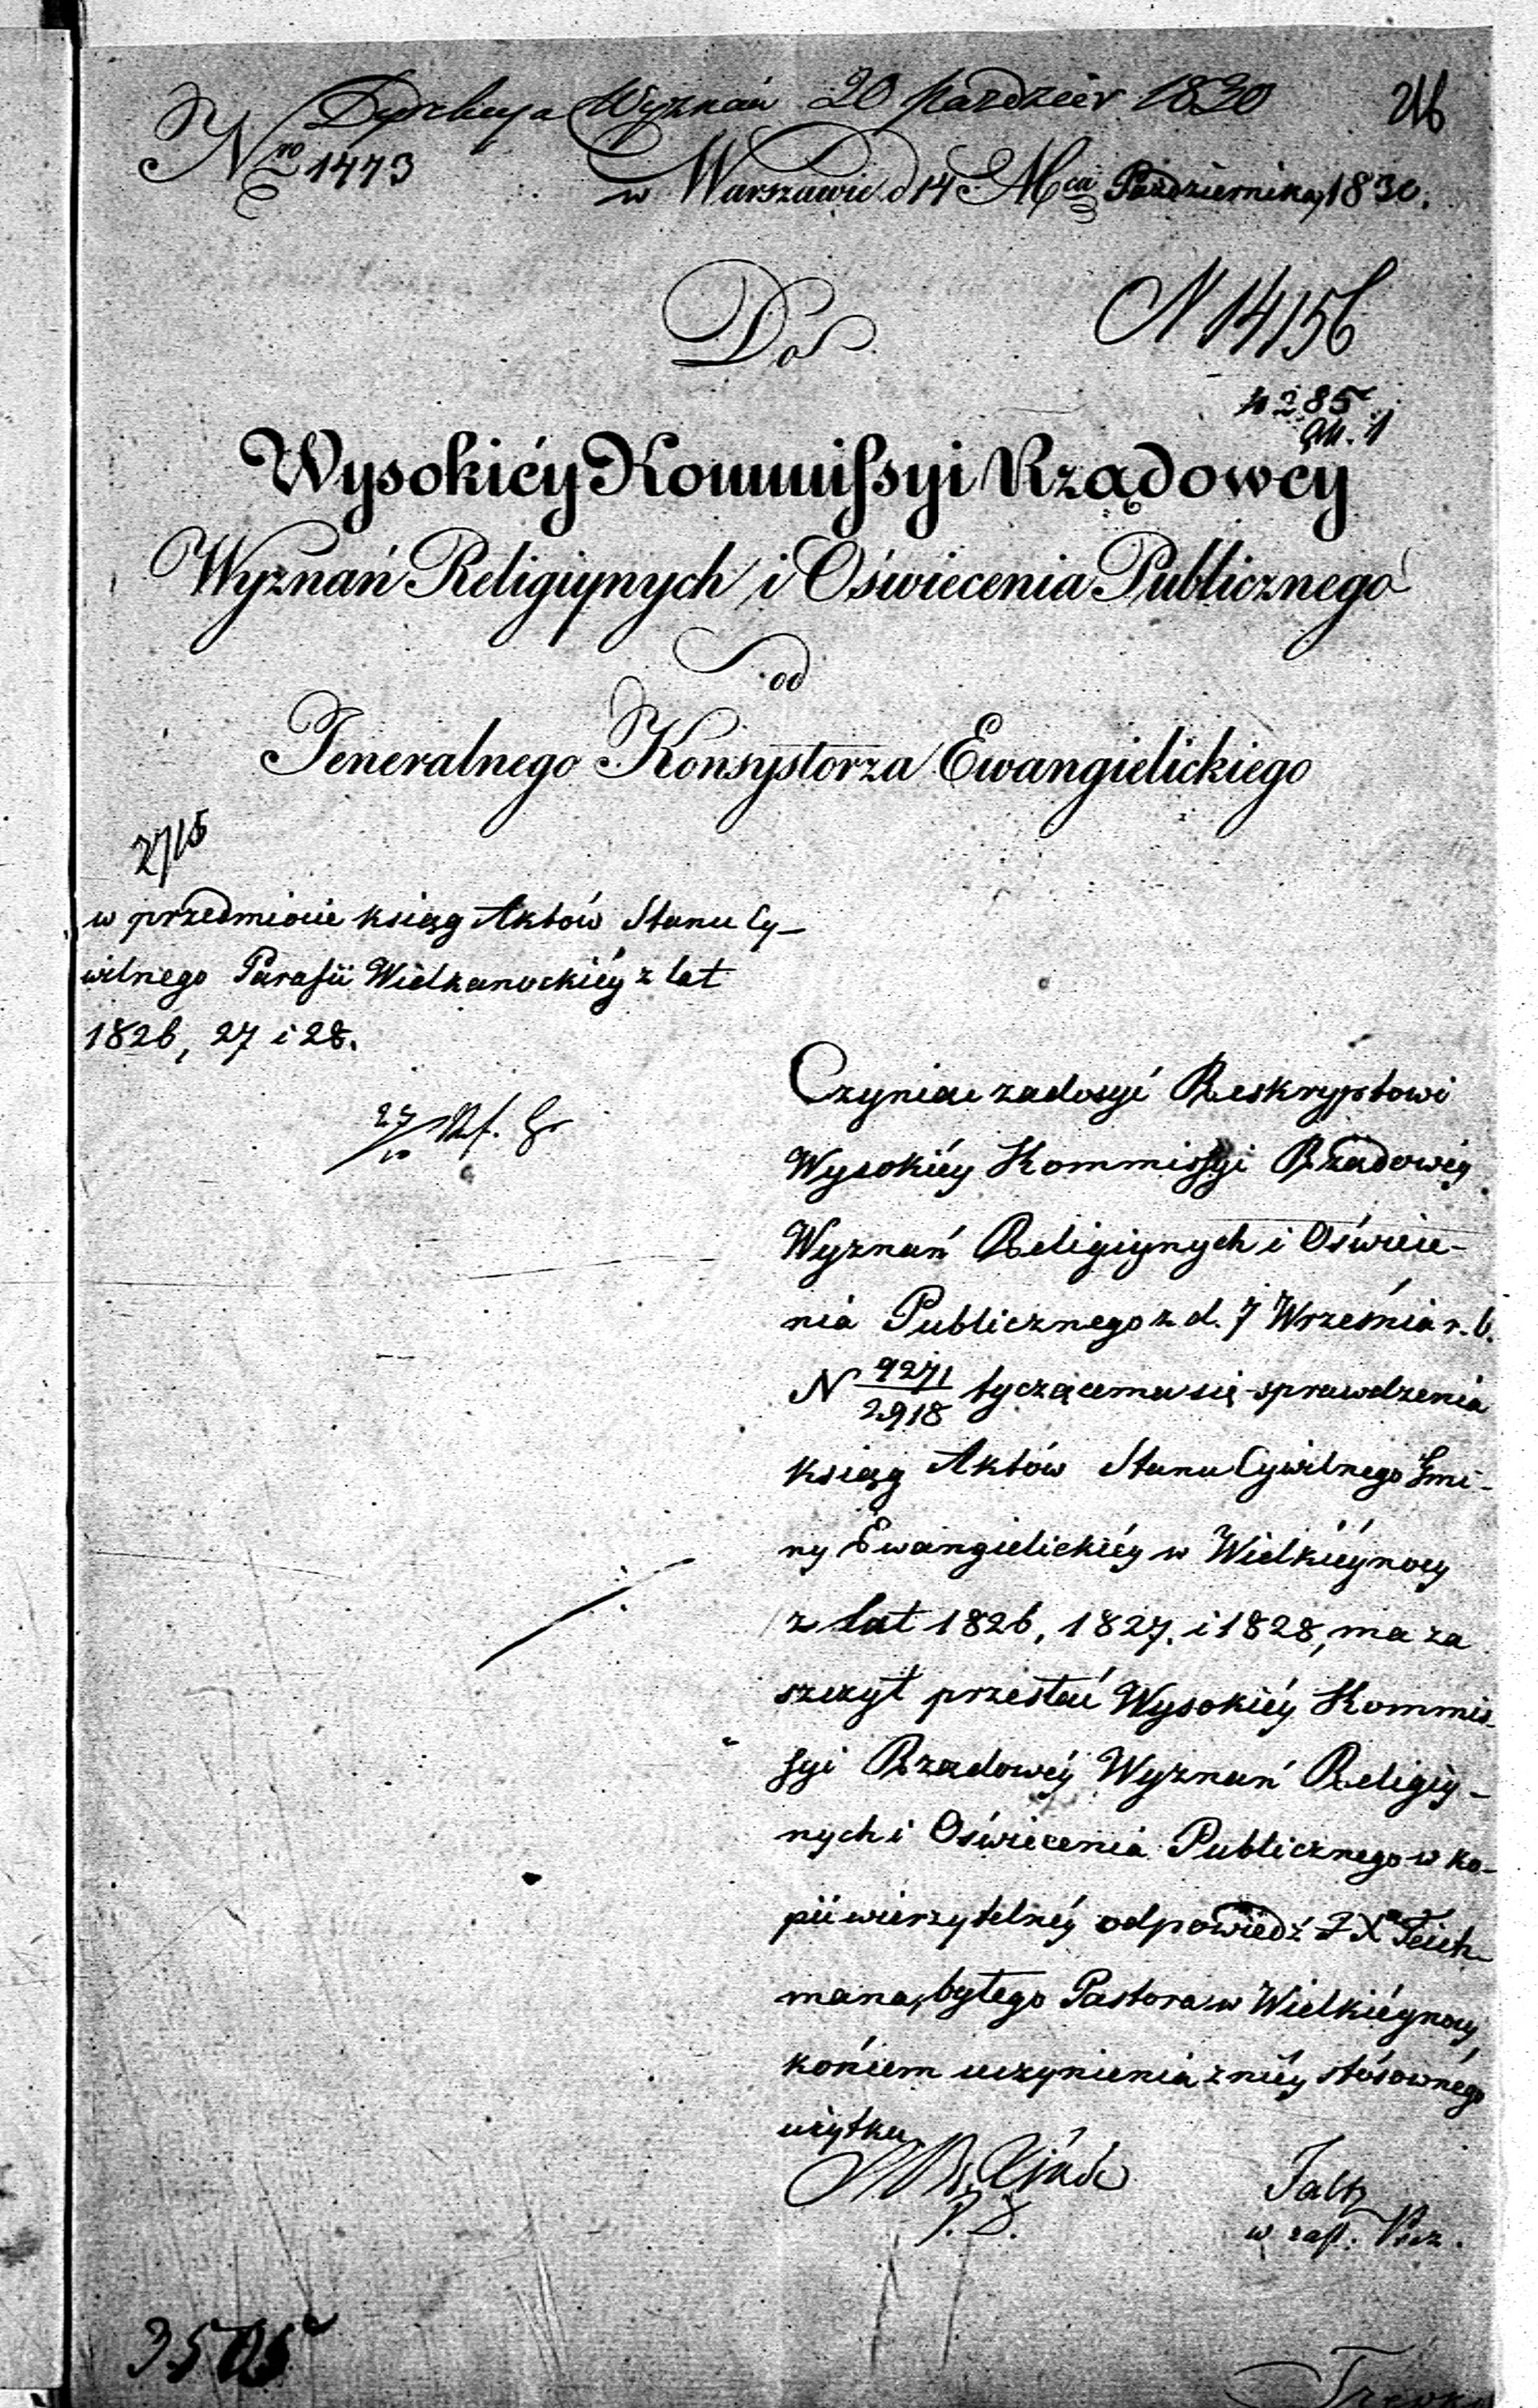 Dyrekcya Wyznań 20 Paździer 1830
Nro 1473
w Warszawie d 14 Mca Października 1830.
Do
N 14156
4285
Wysokiéy Kommissyi Rządowéy
Wyznań Religiynych i Oświecenia Publicznego
od
Jeneralnego Konsystorza Ewangielickiego
2715
w przedmiocie ksiąg Aktów Stanu Cy-
wilnego Parafii Wielkanockiéy z lat
1826, 27 i 28.
Czyniąc zadosyć Reskryptowi
Wysokiéy Kommissyi Rządowéy
Wyznań Religiynych i Oświece-
nia Publicznego z d. 7 Września r. b.
N 9271/2918 tyczącemu się sprawdzenia
ksiąg Aktów Stanu Cywilnego Gmi-
ny Ewangielickiéy w Wielkiéynocy
z lat 1826, 1827. i 1828, ma za
szczyt przesłać Wysokiéy Kommis-
syi Rządowéy Wyznań Religiy-
nych i Oświecenia Publicznego w ko-
pii wierzytelnéy odpowiedź Xa Teich-
mana, byłego Pastora w Wielkiéynocy,
końcem uczynienia z niéy stósownégo
użytku
w zast. Prez.
3505